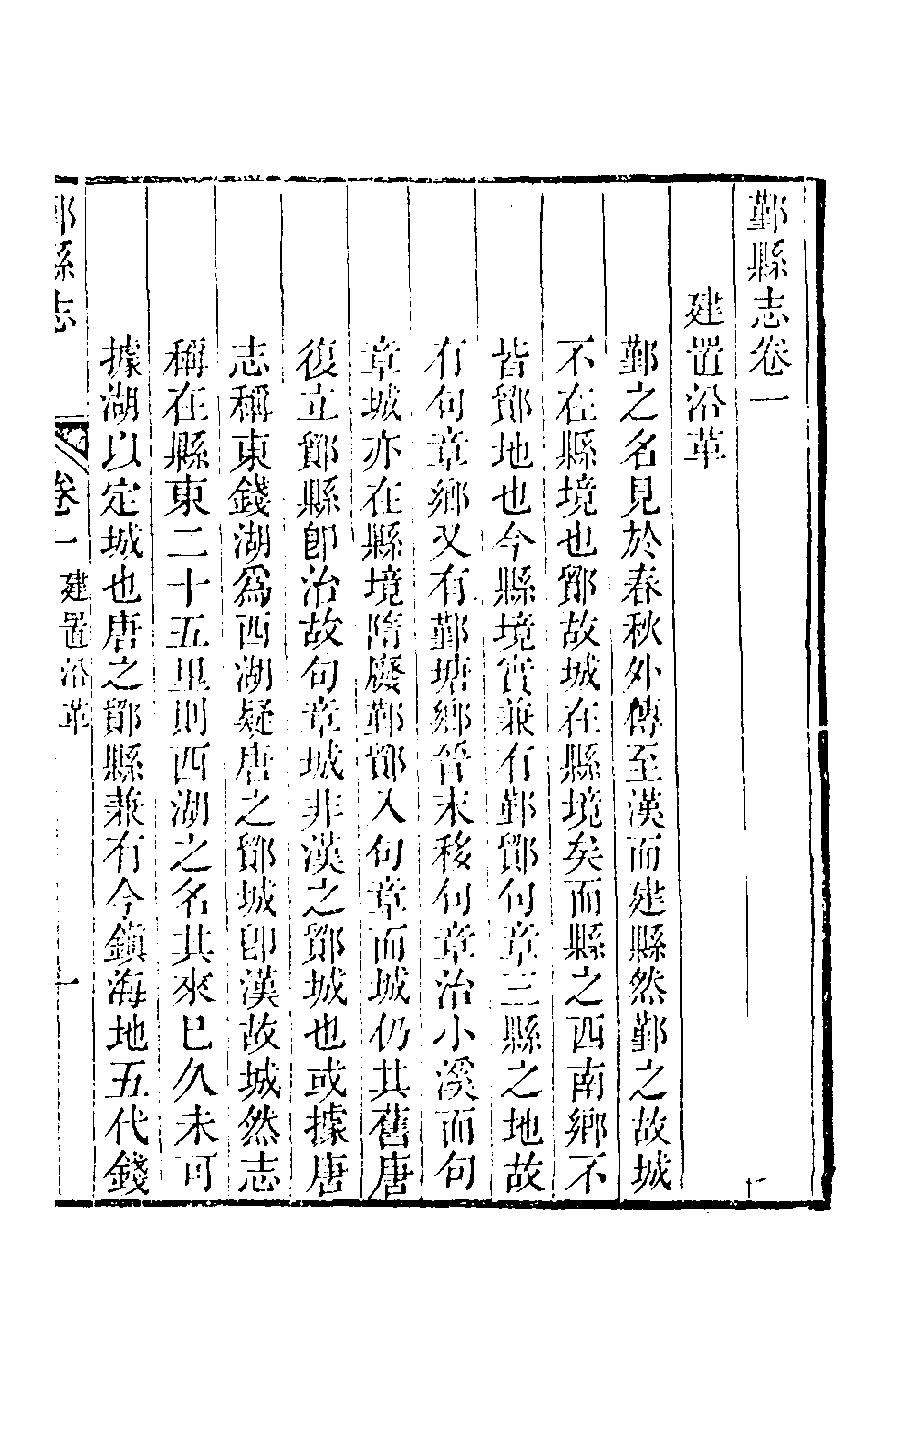 鄞縣志卷一
建置沿革
鄞之名見於春秋外傳至漢而建縣然鄞之故城
不在縣境也鄮故城在縣境矣而縣之西南鄉不
皆鄮地也今縣境實兼有鄞鄮句章三縣之地故
有句章鄉又有鄞塘鄉晉末移句章治小溪而句
章城亦在縣境隋廢鄞鄮入句章而城仍其舊唐
復立鄮縣卽治故句章城非漢之鄮城也或據唐
志稱東錢湖爲西湖疑唐之鄮城卽漢故城然志
稱在縣東二十五里則西湖之名其來已久未可
據湖以定城也唐之鄮縣兼有今鎭海地五代錢
鄞縣志 卷一 建置沿革 一